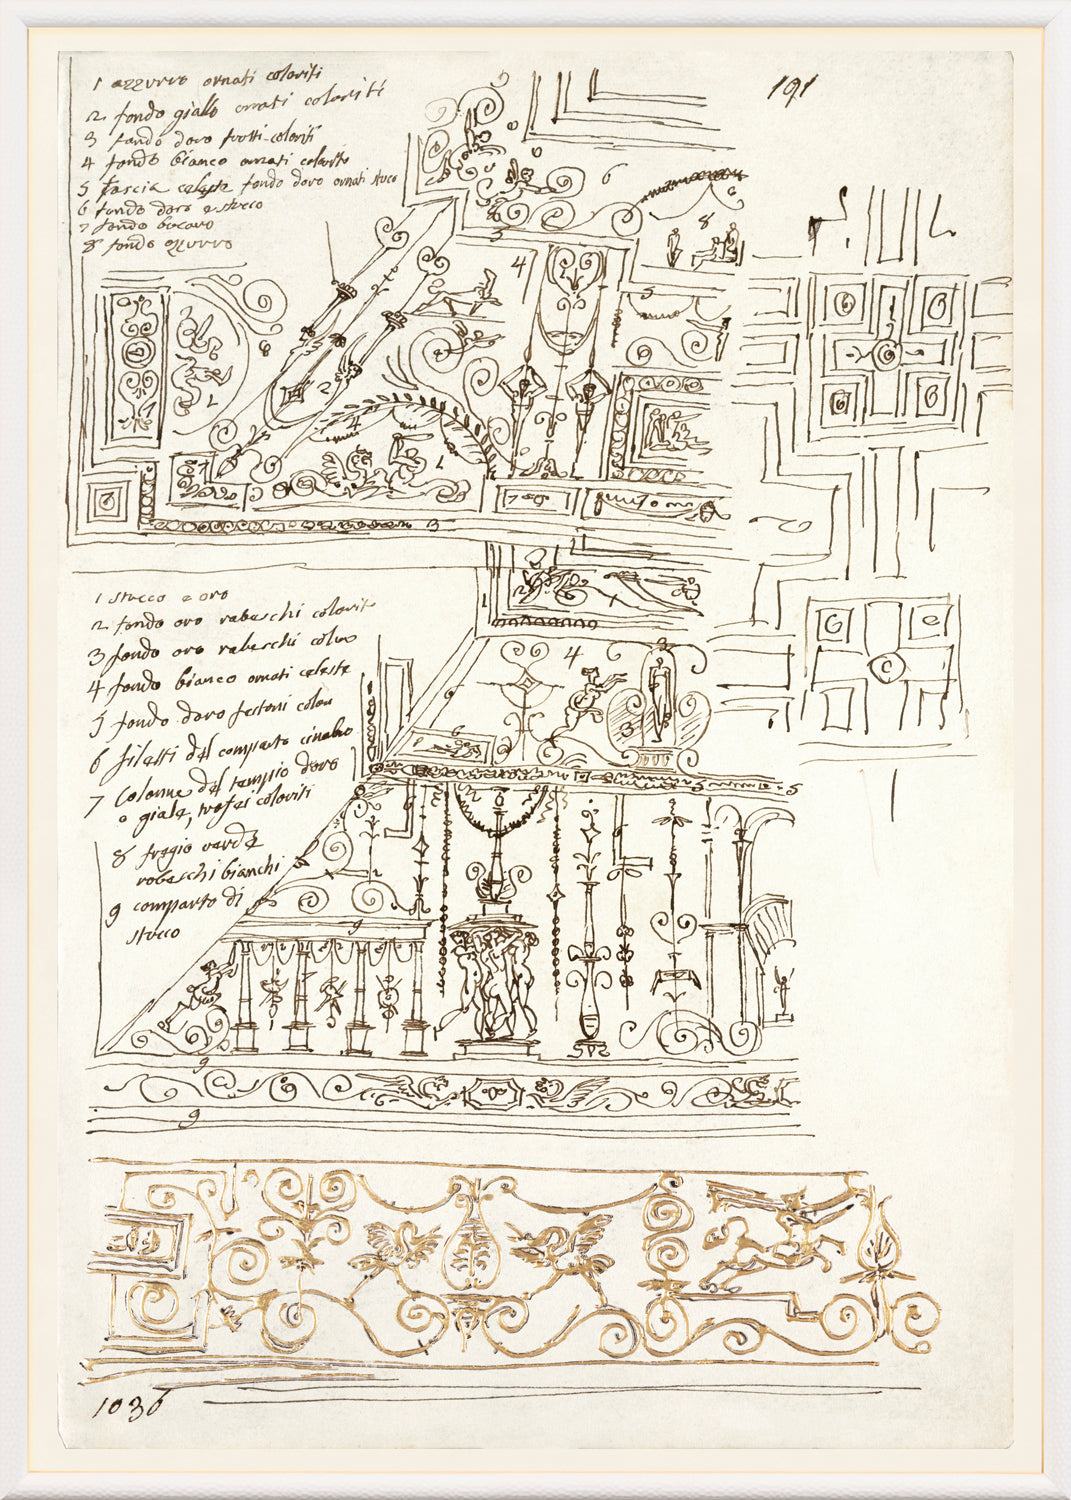 1 azzurro ornati coloriti
2 fondo giallo ornati coloriti
3 fondo doro frotti coloriti
4 fondo bianco ornati colorito
5 fascia celeste fondo doro ornati stuco
6 fondo doro e stuco
7 fondo
8 fondo azzurro
191
1 stucco e oro
2 fondo oro rabeschi colorit
3 fondo oro rabeschi
4 fondo bianco ornati celeste
5 fondo doro festoni
6 filetti del comparto
7 Colonne del tempio doro
o giale, trofei coloriti
8 fregio verde
rabeschi bianchi
9 comparto di
stucco
1036